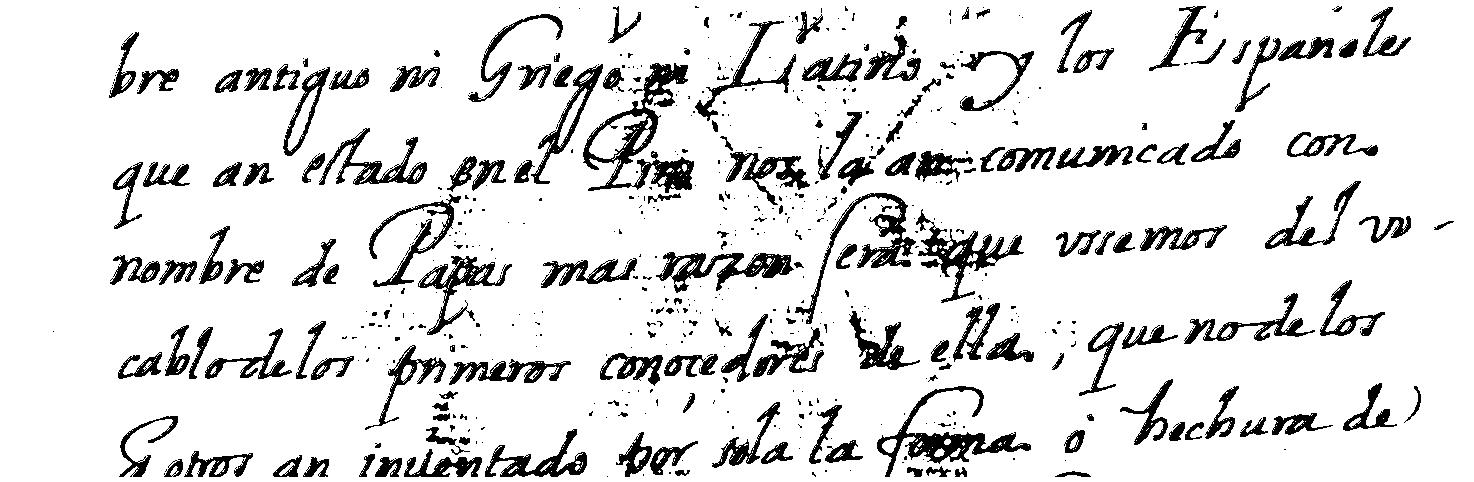 bre antiguo ni Griego ni Latino y los Españoles
que an estado en el Piru nos la an comunicado con
nombre de Papas mas razon sera que usemos del vo-
cablo de los primeros conocedores de ella, que no de los
q otros an inventado por sola la forma o hechura de